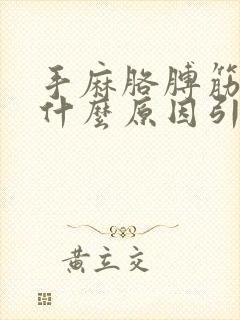 手麻胳膊筋
什麼原因引
黄立交